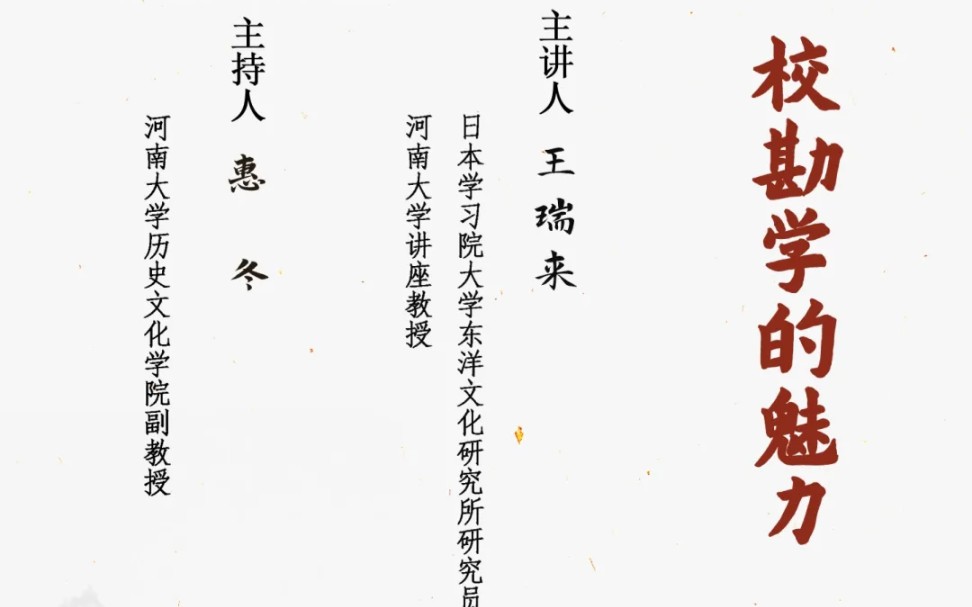 校勘学的魅力
主讲人 王瑞来
日本学习院大学东洋文化研究所研究员
河南大学讲座教授
主持人 惠 冬
河南大学历史文化学院副教授